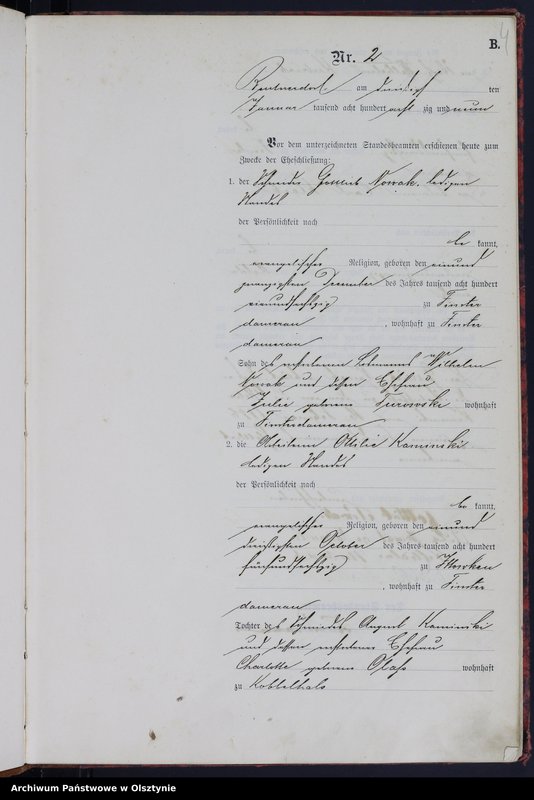 4
B.
Nr. 2
am ten
Januar tausend acht hundert acht zig und neun
Vor dem unterzeichneten Standesbeamten erschienen heute zum
Zwecke der Eheschließung:
1. der Schneider Gottlieb Nowak, ledigen
Standes
der Persönlichkeit nach
be kannt,
evangelischer Religion, geboren den einund
zwanzigsten December des Jahres tausend acht hundert
einundsechzig zu Finster
damerau , wohnhaft zu Finster
damerau
Sohn des verstorbenen Wilhelm
Nowak und dessen Ehefrau
Julie geborene Turowski wohnhaft
zu Finsterdamerau
2. die Ottilie Kaminski
ledigen Standes
der Persönlichkeit nach
be kannt,
evangelischer Religion, geboren den einund
dreißigsten October des Jahres tausend acht hundert
fünfundsechzig zu
, wohnhaft zu Finster
damerau
Tochter des Schmieds August Kaminski
und dessen verstorbenen Ehefrau
Charlotte geborene wohnhaft
zu Kobbelhals
Archiwum Państwowe w Olsztynie